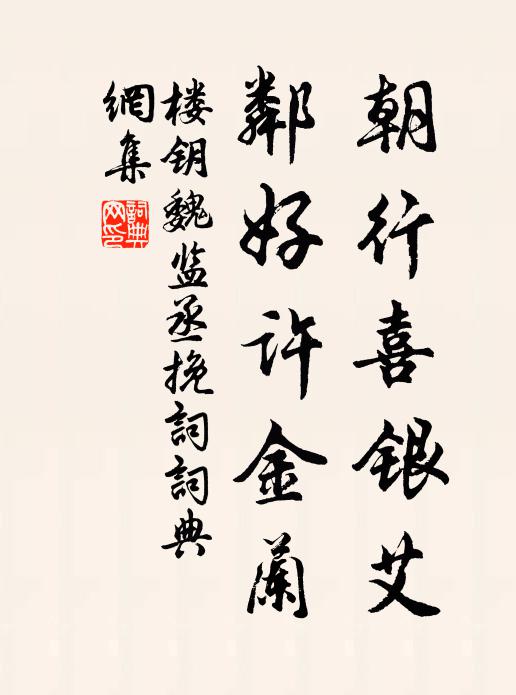 朝行喜银艾
鄰好许金蘭
楼钥魏监丞挽詞詞典
網集
詞典网印